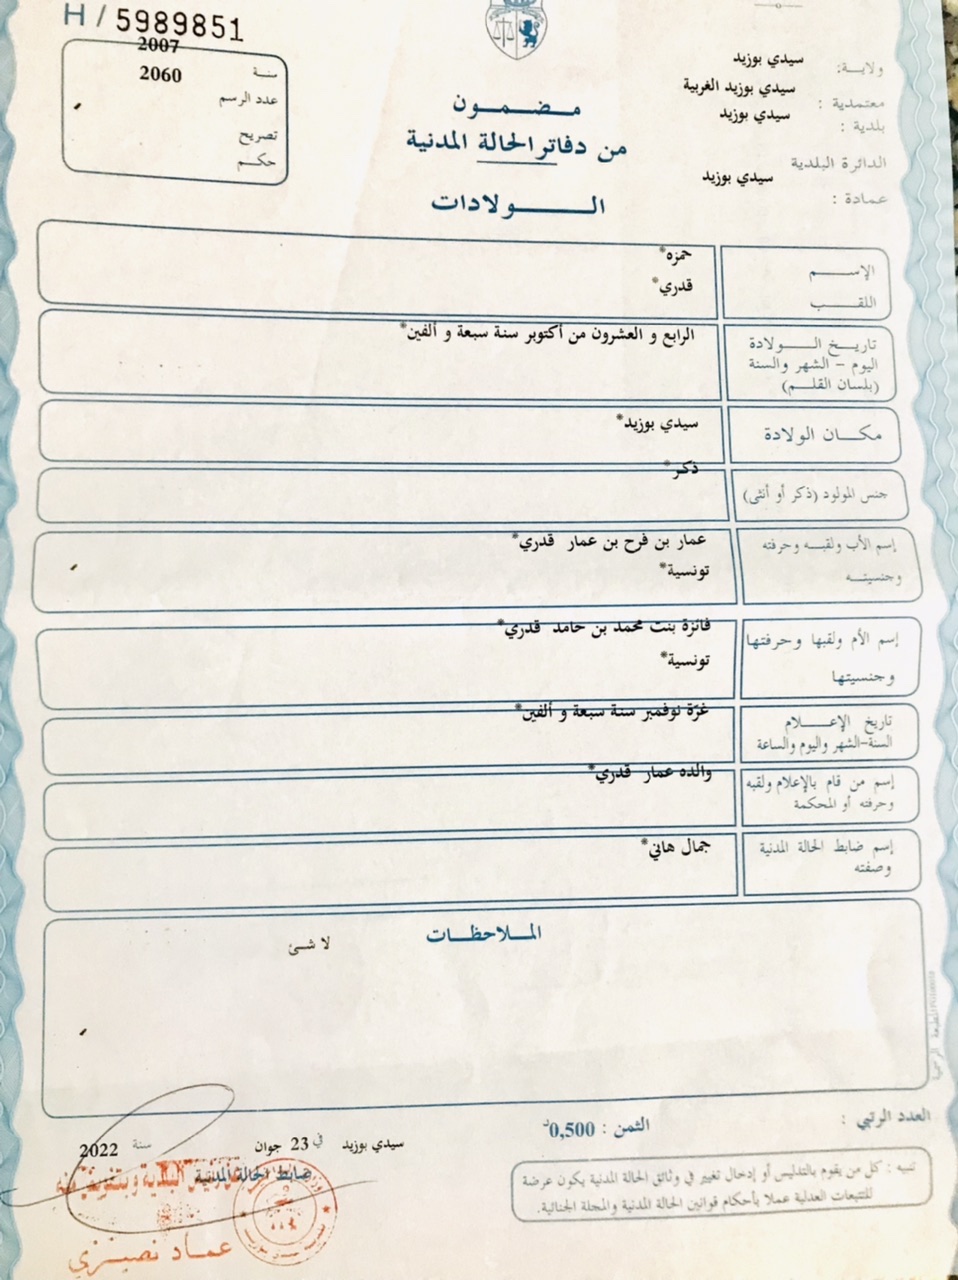 H / 5989851
سنة 2007
عدد الرسم 2060
تصريح
حكم
ولاية: سيدي بوزيد
معتمدية : سيدي بوزيد الغربية
بلدية : سيدي بوزيد
الدائرة البلدية
عمادة : سيدي بوزيد
مضمون
من دفاتر الحالة المدنية
الولادات
الإسم حمزه*
اللقب قدري*
تاريخ الولادة
اليوم - الشهر والسنة
(بلسان القلم)
الرابع و العشرون من أكتوبر سنة سبعة و ألفين*
مكان الولادة سيدي بوزيد*
جنس المولود (ذكر أو أنثى) ذكر*
إسم الأب ولقبه وحرفته
وجنسيته
عمار بن فرح بن عمار قدري*
تونسية*
إسم الأم ولقبها وحرفتها
وجنسيتها
فائزة بنت محمد بن حامد قدري*
تونسية*
تاريخ الإعلام
السنة-الشهر واليوم والساعة
غرّة نوفمبر سنة سبعة و ألفين*
إسم من قام بالإعلام ولقبه
وحرفته أو المحكمة
والده عمار قدري*
إسم ضابط الحالة المدنية
وصفته
جمال هاني*
الملاحظات
لا شئ
العدد الرتبي :
الثمن : 0,500د
سيدي بوزيد في 23 جوان سنة 2022
ضابط الحالة المدنية
تنبيه : كل من يقوم بالتدليس أو إدخال تغيير في وثائق الحالة المدنية يكون عرضة
للتتبعات العدلية عملا بأحكام قوانين الحالة المدنية والمجلة الجنائية.
عماد نصيري